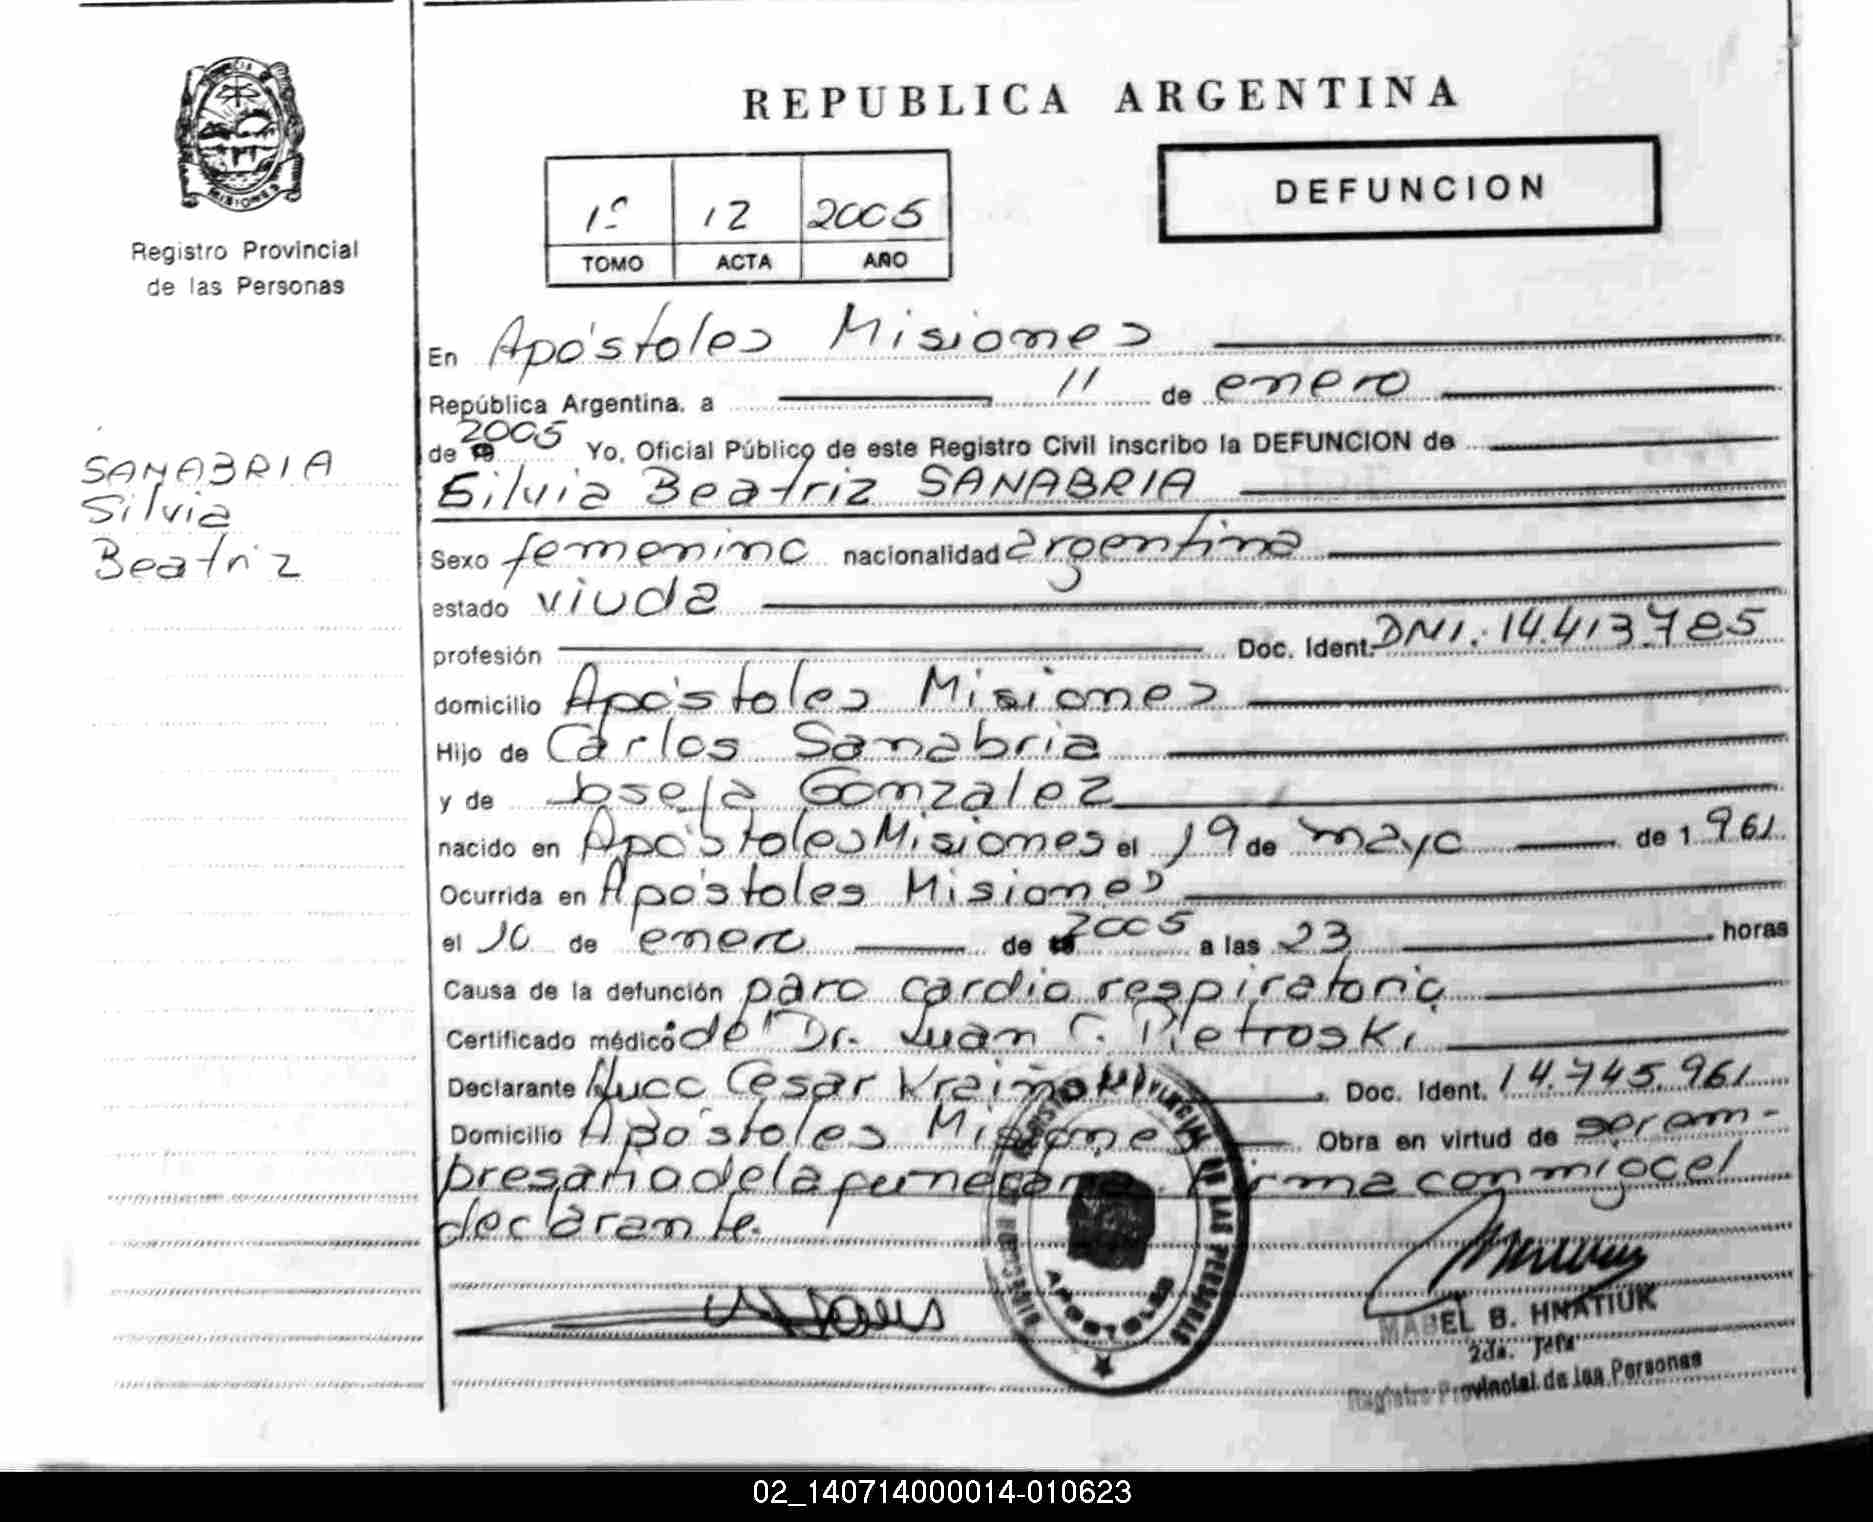 REPUBLICA ARGENTINA
DEFUNCION
1º 12 2005
TOMO ACTA AÑO
MISIONES
Registro Provincial
de las Personas
SANABRIA
Silvia
Beatriz
En Apóstoles Misiones
República Argentina, a 11 de enero
de 2005 Yo, Oficial Público de este Registro Civil inscribo la DEFUNCION de
Silvia Beatriz SANABRIA
Sexo femenino nacionalidad argentina
estado viuda
profesión Doc. Ident. DNI. 14.413.785
domicilio Apóstoles Misiones
Hijo de Carlos Sanabria
y de Josefa Gonzalez
nacido en Apóstoles Misiones el 19 de mayo de 1961
Ocurrida en Apóstoles Misiones
el 10 de enero de 2005 a las 23 horas
Causa de la defunción paro cardio respiratorio
Certificado médico: del Dr. Juan C. Pietroski
Declarante Hugo César Doc. Ident. 14.745.961
Domicilio Apóstoles Misiones Obra en virtud de ser em-
presario de la funeraria. Firma conmigo el
declarante.
REGISTRO PROVINCIAL DE LAS PERSONAS
APOSTOLES
MABEL B. HNATIUK
2da. Jefa
Registro Provincial de las Personas
02_140714000014-010623